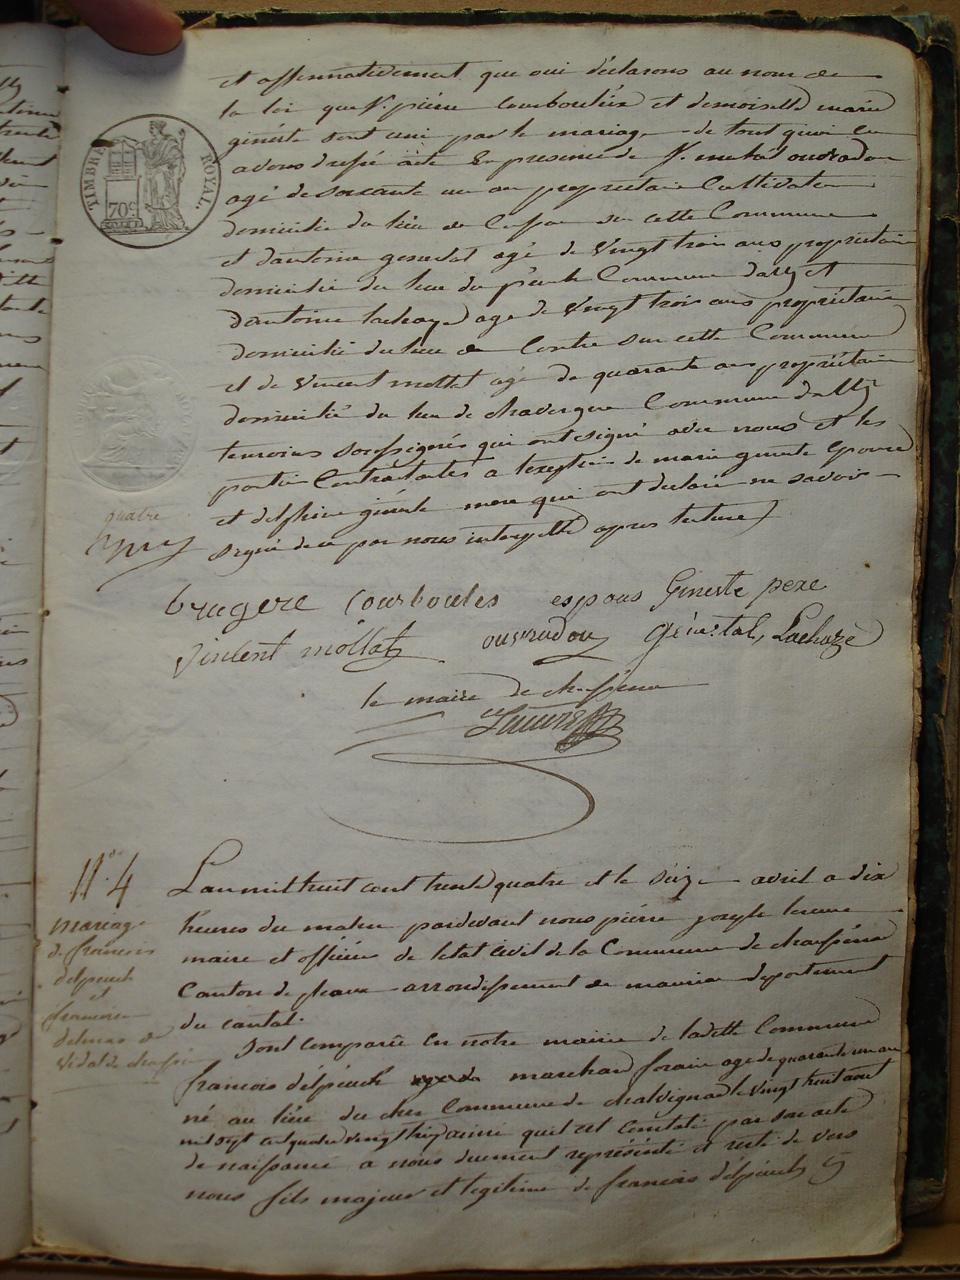 TIMBRE ROYAL.
70c
et affirmativement que oui déclarons au nom de
la loi que Sr. pierre Courboulès et demoiselle marie
gineste sont uni par le mariage de tout quoi en
avons dressé acte En presence de Sr. michel ouvradou
agé de soixante un an proprietaire Cultivateur
domicilié du lieu de sur cette Commune
et d'antoine genestal agé de vingt trois ans propriétaire
domicilié du lieu du Commune d'ally et
d'antoine lachaze agé de vingt trois ans propriétaire
domicilié du lieu de Contre sur cette Commune
et de Vincent mollat agé de quarante ans propriétaire
domicilié du lieu de chavergne Commune d'ally
temoins sousignés qui ont signé avec nous et les
partie Contractantes a l'exeption de marie gineste Epouse
et delphine gineste mere qui ont declaré ne savoir
signé de ce par nous interpellé apres lecture
quatre
brugere Courboules espous Gineste pere
Vinsent mollat ouvradou génestal, Lachaze
le maire de chaussenac
N.° 4
mariage
de françois
delpeuch
et
francoise
delmas de
Vidal de
L'an mil huit cent trente quatre et le seize avril a dix
heures du matin pardevant nous pierre joseph
maire et officier de l'etat Civil de la Commune de chaussenac
Canton de pleaux arrondissement de mauriac departement
du cantal.
Sont comparû En notre mairie de ladette Commune
françois delpeuch marchand forain age de quarante un an
né au lieu du cher Commune de chalvignac le vingt huit aout
mil sept cent quatre vingt ainsi qu'il est Constaté par son acte
de naissance a nous duement représenté et resté de vers
nous fils majeur et legitime de françois delpeuch